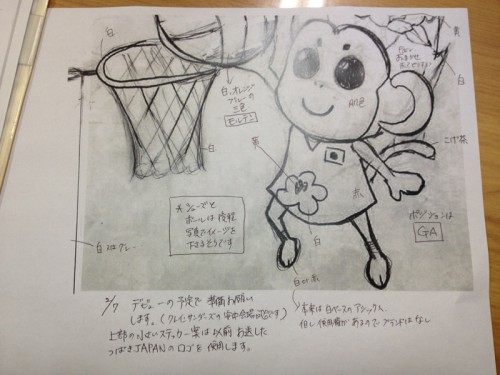 白
白、オレンジ
ブルーの
三色
モルテン
肌色
黄
白
白
こげ茶
黄
赤
白
ポジションは
GA
*シューズと
ボールは後程
写真でイメージを
下さるそうです
白 又は グレー
白か赤
2/7 デビューの予定で準備お願い
します。
本来は白ベースのアシックス
但し使用権があるのでブランドはなし
上部の小さいステッカー案は以前お送した
つばきJAPANのロゴを使用します。